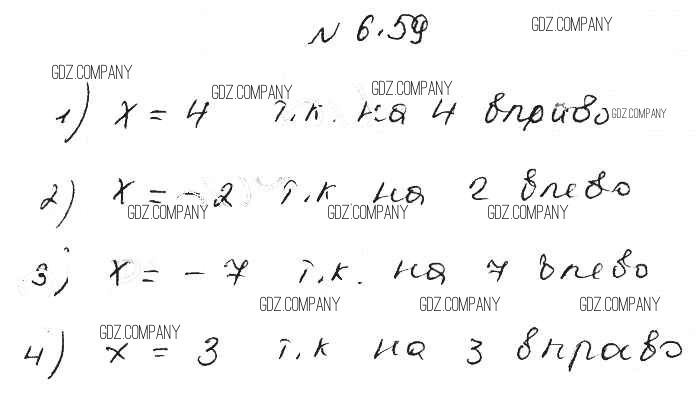 N 6.59 GDZ.COMPANY
GDZ.COMPANY GDZ.COMPANY GDZ.COMPANY
1) x = 4 т.к. на 4 вправо GDZ.COMPANY
2) x = - 2 т.к на 2 влево
GDZ.COMPANY GDZ.COMPANY GDZ.COMPANY
3) x = - 7 т.к. на 7 влево
GDZ.COMPANY GDZ.COMPANY GDZ.COMPANY
GDZ.COMPANY
4) x = 3 т.к на 3 вправо